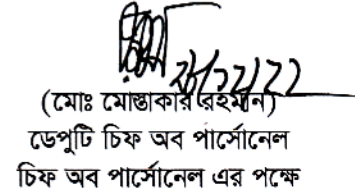 (মোঃ মোস্তাকার রহমান)
ডেপুটি চিফ অব পার্সোনেল
চিফ অব পার্সোনেল এর পক্ষে